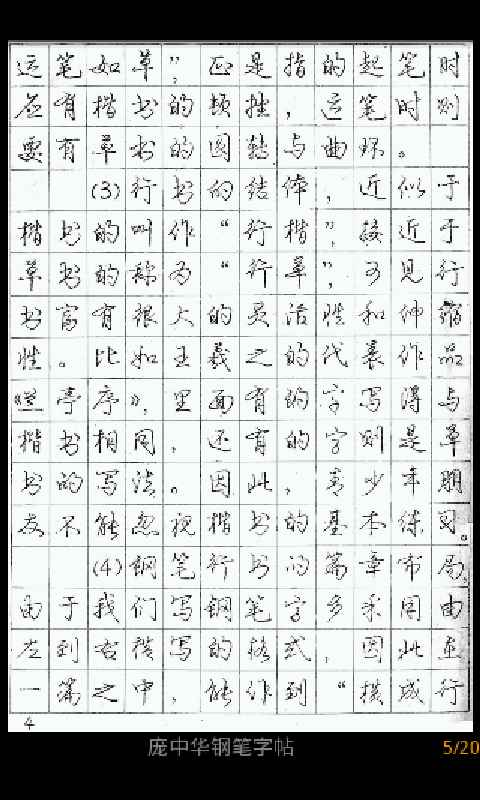 运笔如草”，正是指的起笔时
应有楷书的顿挫，运笔时则
要有草书的圆转与曲环。
(3)行书的结体，近似于
楷书的叫作“行楷”，接近于
草书的称为“行草”，可见行
书富有很大的灵活性和伸缩
性。比如王羲之的代表作品
《兰亭序》，里面有的字写得与
楷书相同，还有的字则是草
书的写法。因此，青少年朋
友不能忽视楷书的基本练习。
(4)钢笔行书的篇章布局。
由于我们写钢笔字多采用由
左到右横写的格式，因此在
一篇之中，能作到“横成行
4
庞中华钢笔字帖
5/20